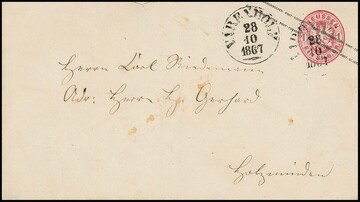 VARENHOLZ
28
10
1867
PREUSSEN
28
10
1867
Herrn Carl Niedemann
Adr: Herrn Hg. Gerhard
Holzminden